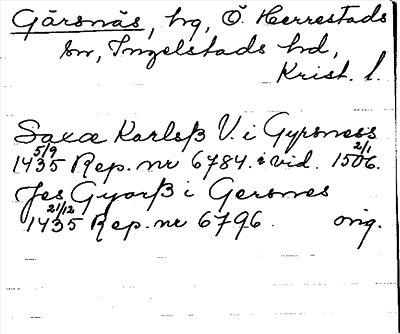 Gärsnäs, hg, Ö. Herrestads
sn, Ingelstads hd,
Krist. l.
Saxæ Karlsß V. i Gyrsness
5/9 1435 Rep. nr 6784. i vid. 2/1 1506.
Jes Gyorß i Gersnes
21/12 1435 Rep. nr 6796. orig.